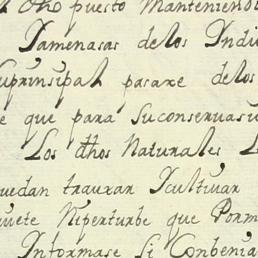 otro puesto Manteniendo
Jamenasas delos Indi
suprinsipal pasare delos
e que para Suconservasi
Los dhos Naturales L
uedan trauxar Icultiuar
quiete Niperturbe que Porm
Informase si Conbenia